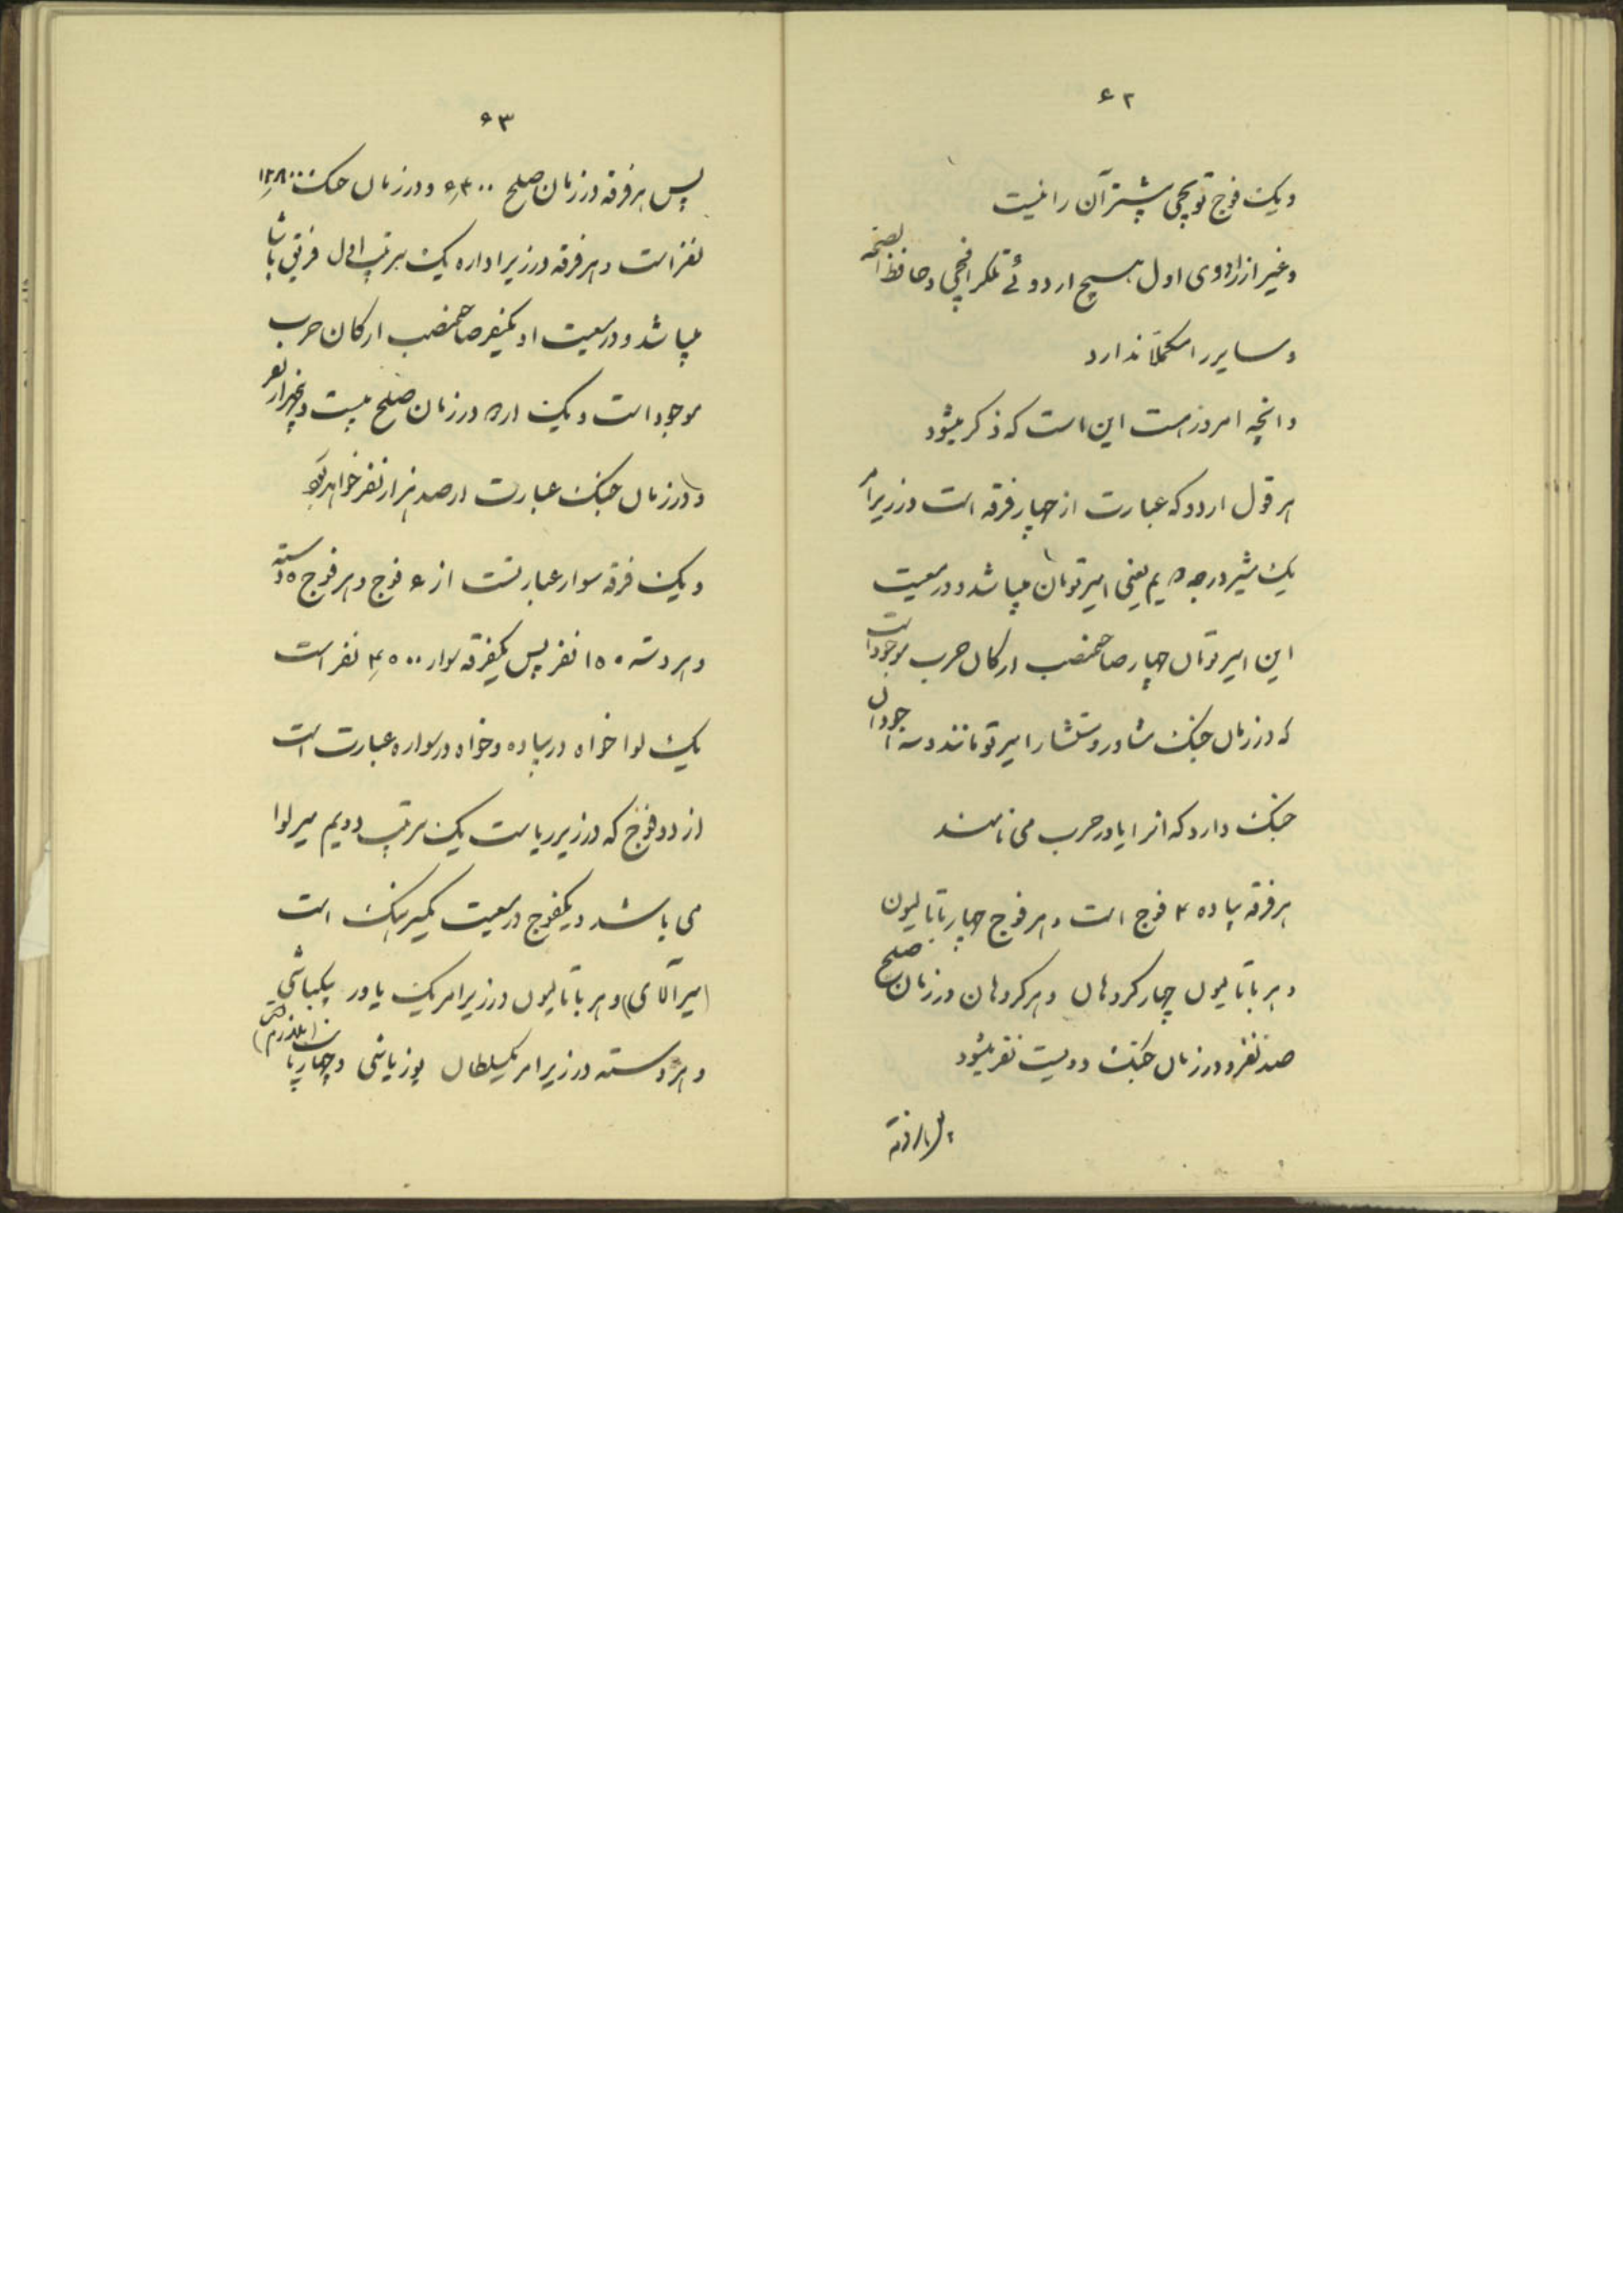 ۶۲
و یک فوج توپچی پیشتر آن را نیست
و غیر از اردوی اول هیچ اردوئی تلگرافچی و حافظ الصحه
و سایر را مکملاً ندارد
و انچه امروز هست این است که ذکر میشود
هر قول اردو که عبارت از چهار فرقه است در زیر امر
یک مشیر درجه دویم یعنی امیر تومان میباشد و در معیت
این امیر تومان چهار صاحمنصب ارکان حرب موجود است
که در زمان جنک مشاور و مستشار امیر تومانند و سه
جنک دارد که انرا یاور حرب می نامند
هر فرقه پیاده ۴ فوج است و هر فوج چهار باتالیون
و هر باتالیون چهار کروهان و هر کروهان در زمان صلح
صد نفر و در زمان جنک دویست نفر میشود
پس هر فرقه
۶۳
پس هر فرقه در زمان صلح ۶٬۴۰۰ و در زمان جنک ۱۲٬۸۰۰
نفر است و هر فرقه در زیر اداره یک سرتیپ اول فریق پاشا
میباشد و در معیت او یکنفر صاحمنصب ارکان حرب
موجود است و یک اردو در زمان صلح بیست و پنجهزار نفر
و در زمان جنک عبارت از صد هزار نفر خواهد بود
و یک فرقه سوار عبارتست از ۶ فوج و هر فوج ۵ دسته
و هر دسته ۱۵۰ نفر پس یکفرقه سوار ۴٬۵۰۰ نفر است
یک لوا خواه در پیاده و خواه در سواره عبارت است
از دو فوج که در زیر ریاست یک سرتیپ دویم میر لوا
می باشد و یکفوج در معیت یکسرهنک است
(میرآلای) و هر باتالیون در زیر امر یک یاور بیکباشی
و هر دسته در زیر امر یکسلطان یوزباشی و چهار